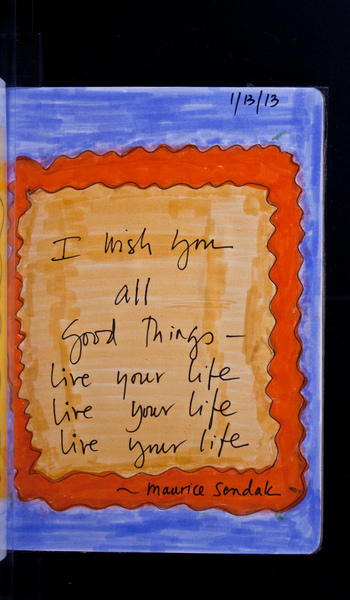 1/13/13
I wish you
all
Good Things —
live your life
live your life
live your life
~ maurice Sendak